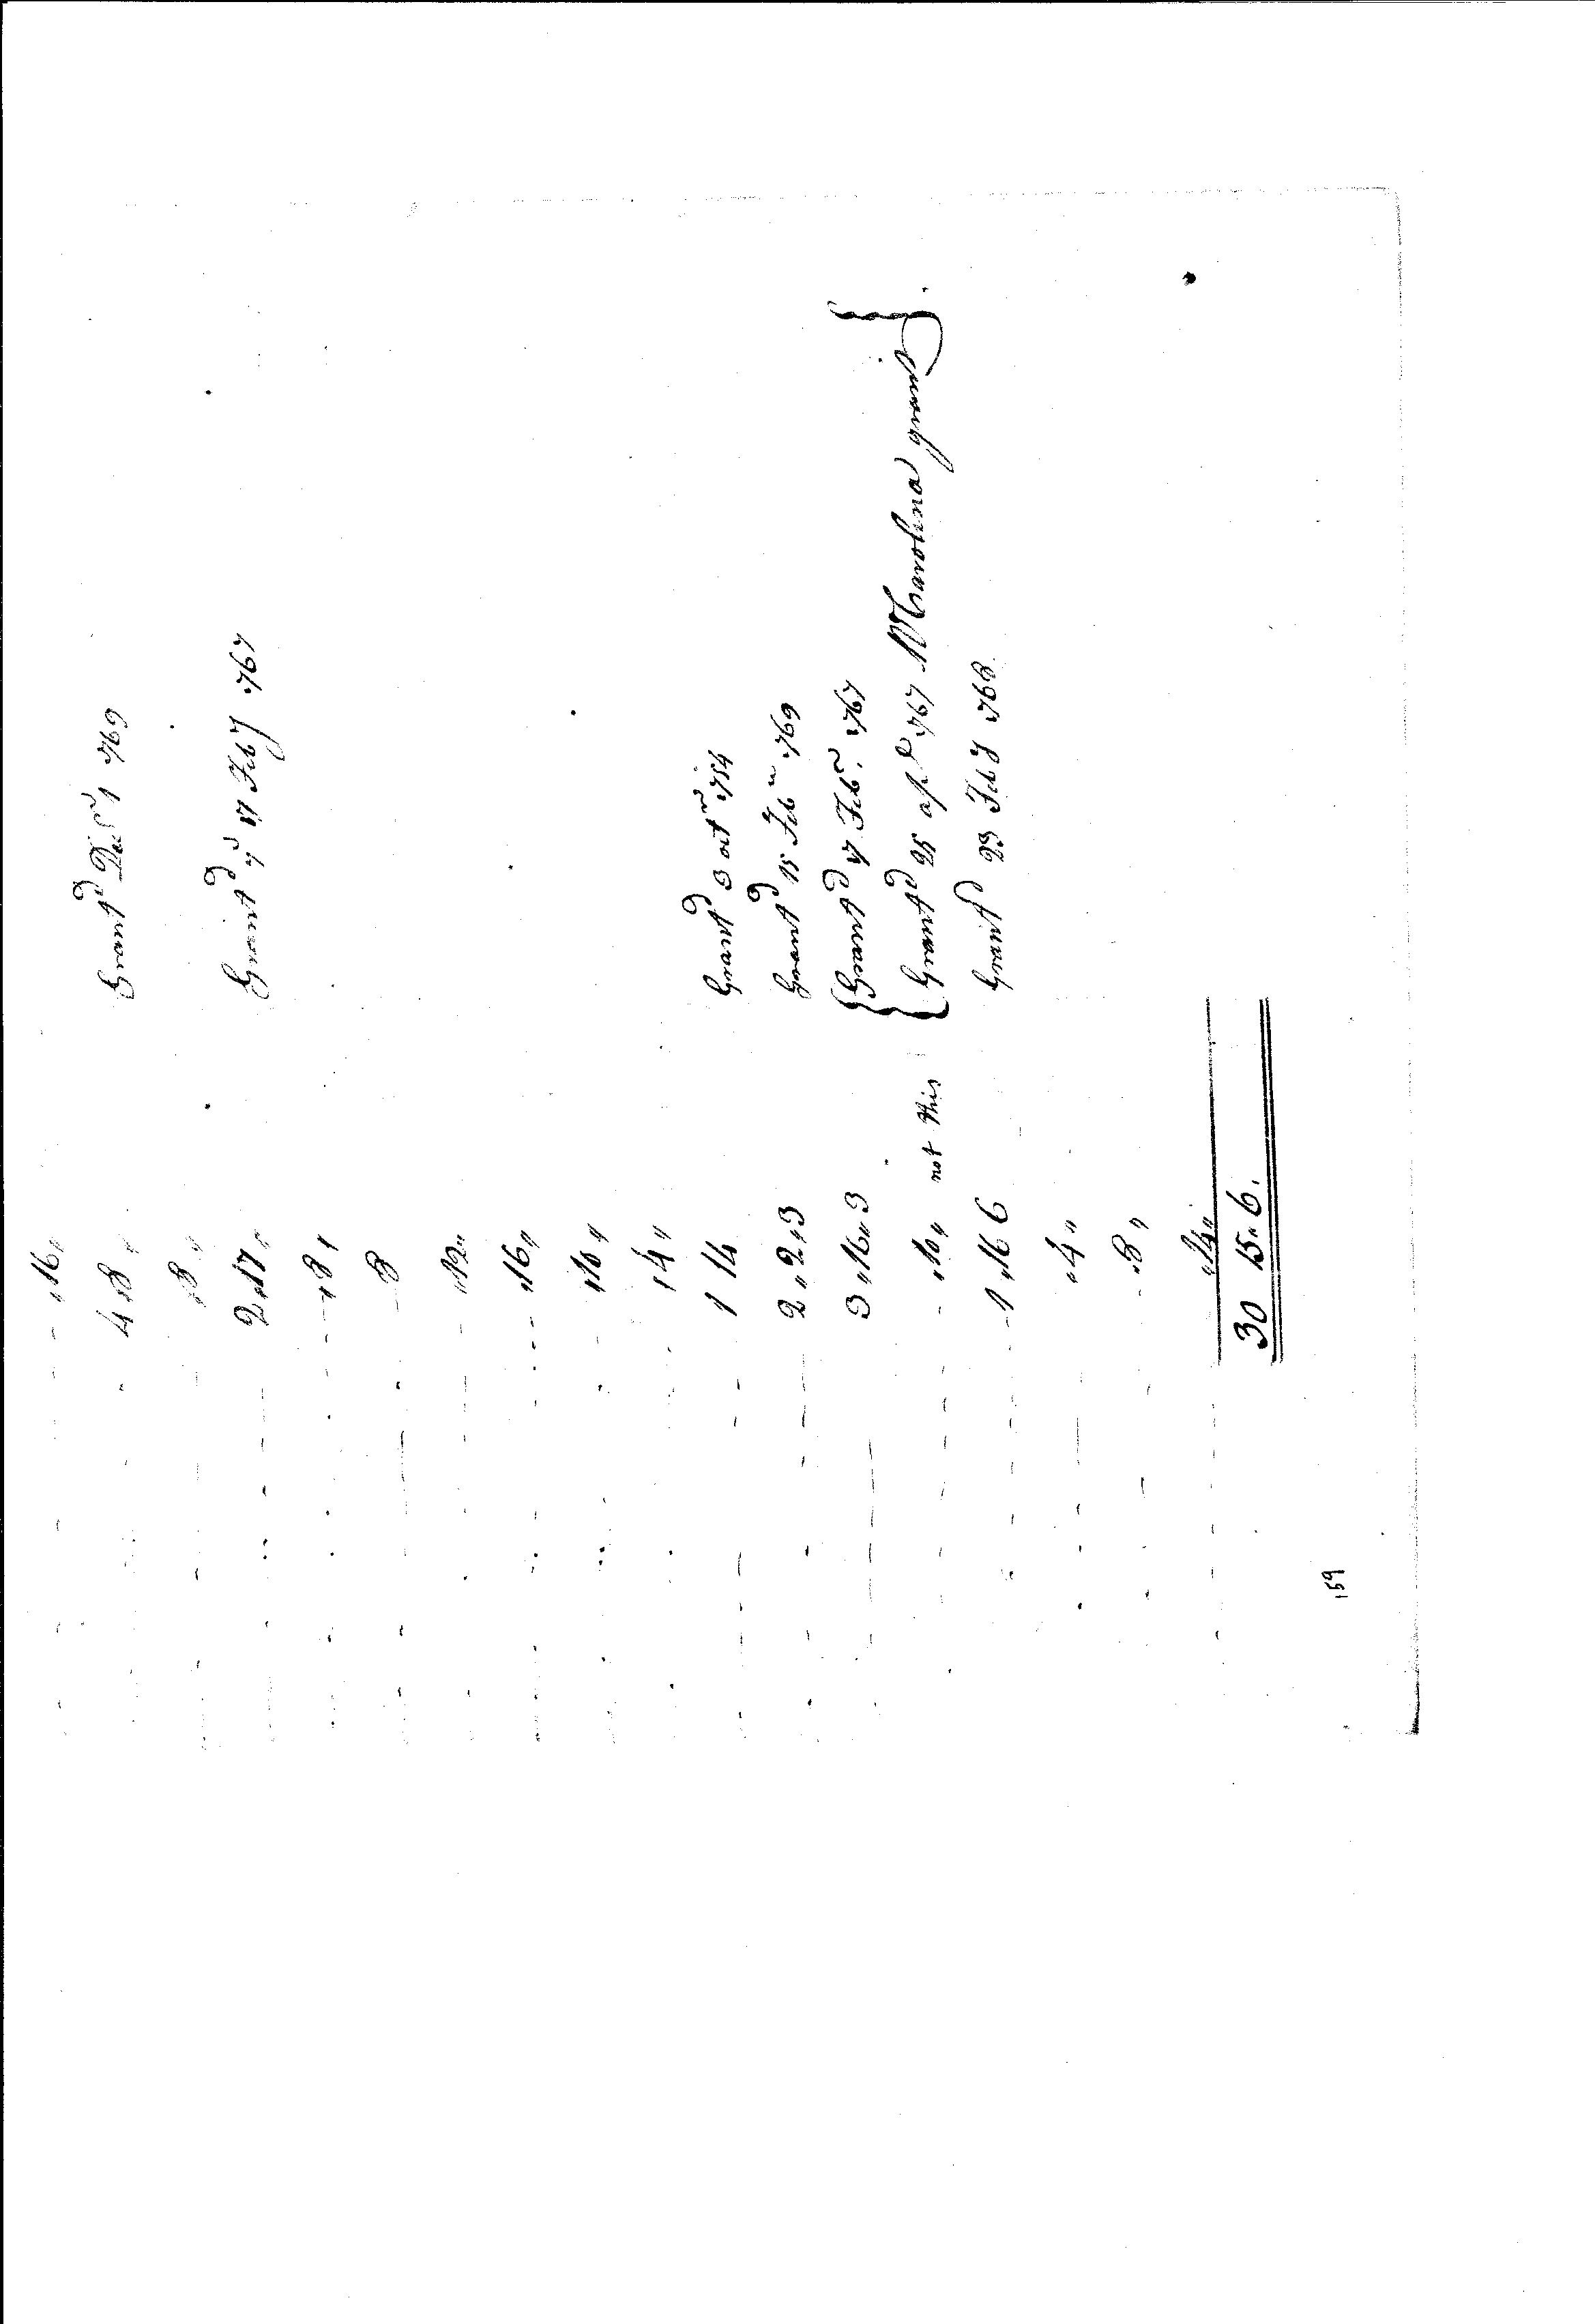 „16„
4„8„ Grant^d Dec^r 1 1769
„8„
2„17„ Grant^d y^e 17 Feb^y 1767
„8„
8
„12„
„16„
„10„
14„
1 14 Grant^d 3 oct^r 1754
2„2„3 Grant^d 15 Feb^r 1769
3„16„3 Grant^d 17 Feb^r. 1767
„10„ not this Grant^d 25 ap^l 1767 N Carolina grant
1„16 6 Grant^d 23 Feb^y 1768
„4„
„8„
„14„
30 15„6.
159